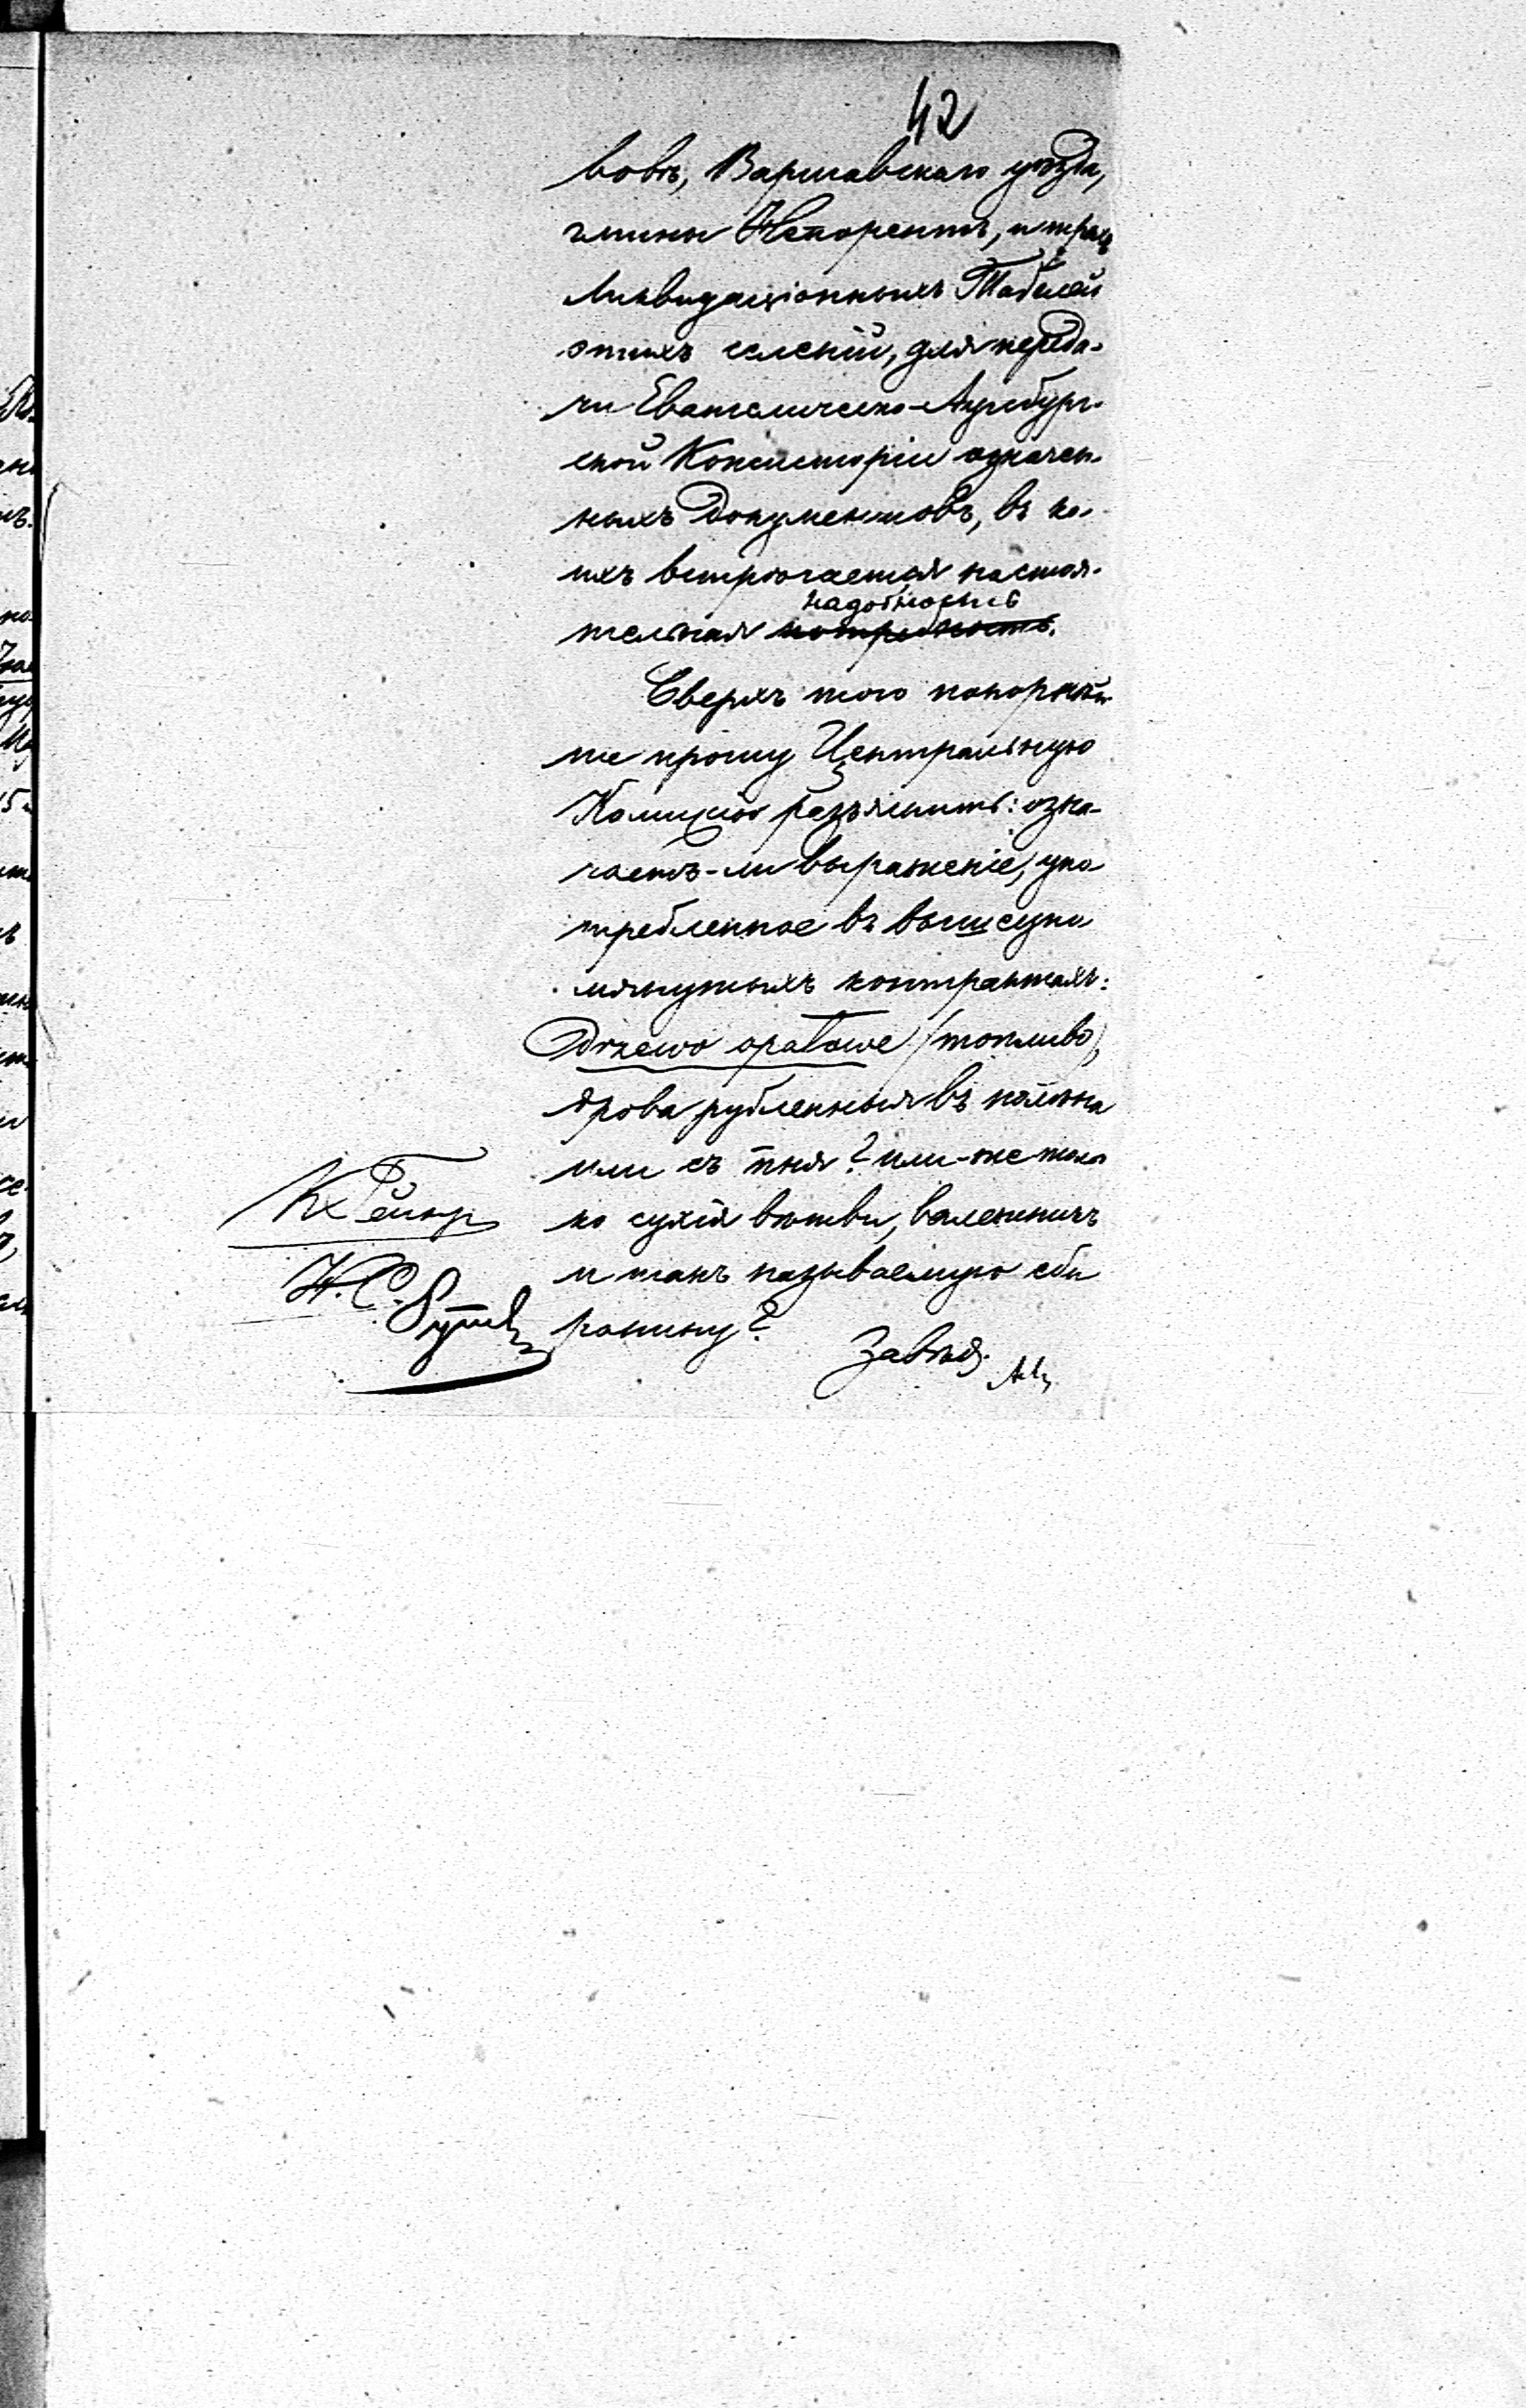 42
вовъ, Варшавскаго уѣзда,
гмины Непорентъ, и трехъ
Ликвидаціонныхъ Табелей
этихъ селеній, для переда-
чи Евангелическо-Аугсбург-
ской Консисторіи означен-
ныхъ документовъ, въ ко-
ихъ встрѣчается настоя-
надобность
тельная потребность.
Сверхъ того покорнѣй-
ше прошу Центральную
Комисію разъяснить: озна-
чаетъ-ли выраженіе, упо
требленное въ вышеупо
мянутыхъ контрактахъ:
Drzewo opałowe (топливо),
дрова рубленныя въ полѣна
или съ пня? или-же толь
ко сухія вѣтви, валежникъ
и такъ называемую сби
ранину?
Завѣд.